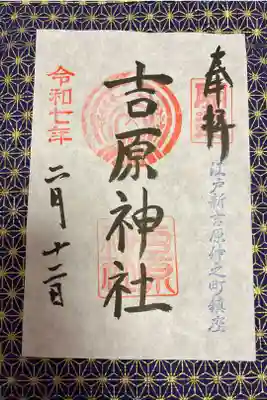 奉拝
江戸新吉原仲之町鎮座
吉原神社
令和七年
二月十二日